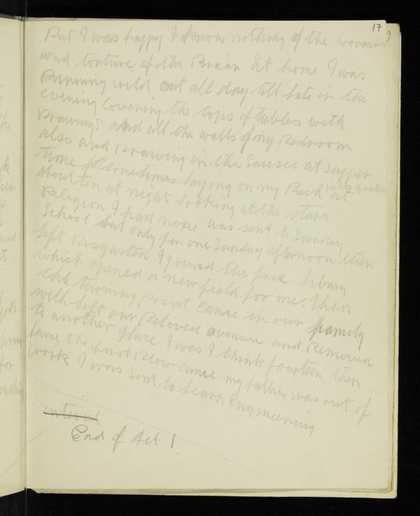 17
But I was happy I knew nothing of the worries
and torture of the Brain at home I was
Running wild out all day till late in the
evening covering the tops of tables with
Drawings and all the walls of my Bedroom
also and Drawing in the at supper
time sometimes laying on my Back
at night looking at the stars
Religion I had none was sent to Sunday
School but only for one Sunday afternoon then
left disgusted I found the free library
which opened a new field for me. Then
the turning point came in our family
well left our Beloved and Removed
to another place I was I think fourteen then
came the first Blow came my father was out of
work I was sent to learn Engineering
End of Act 1.